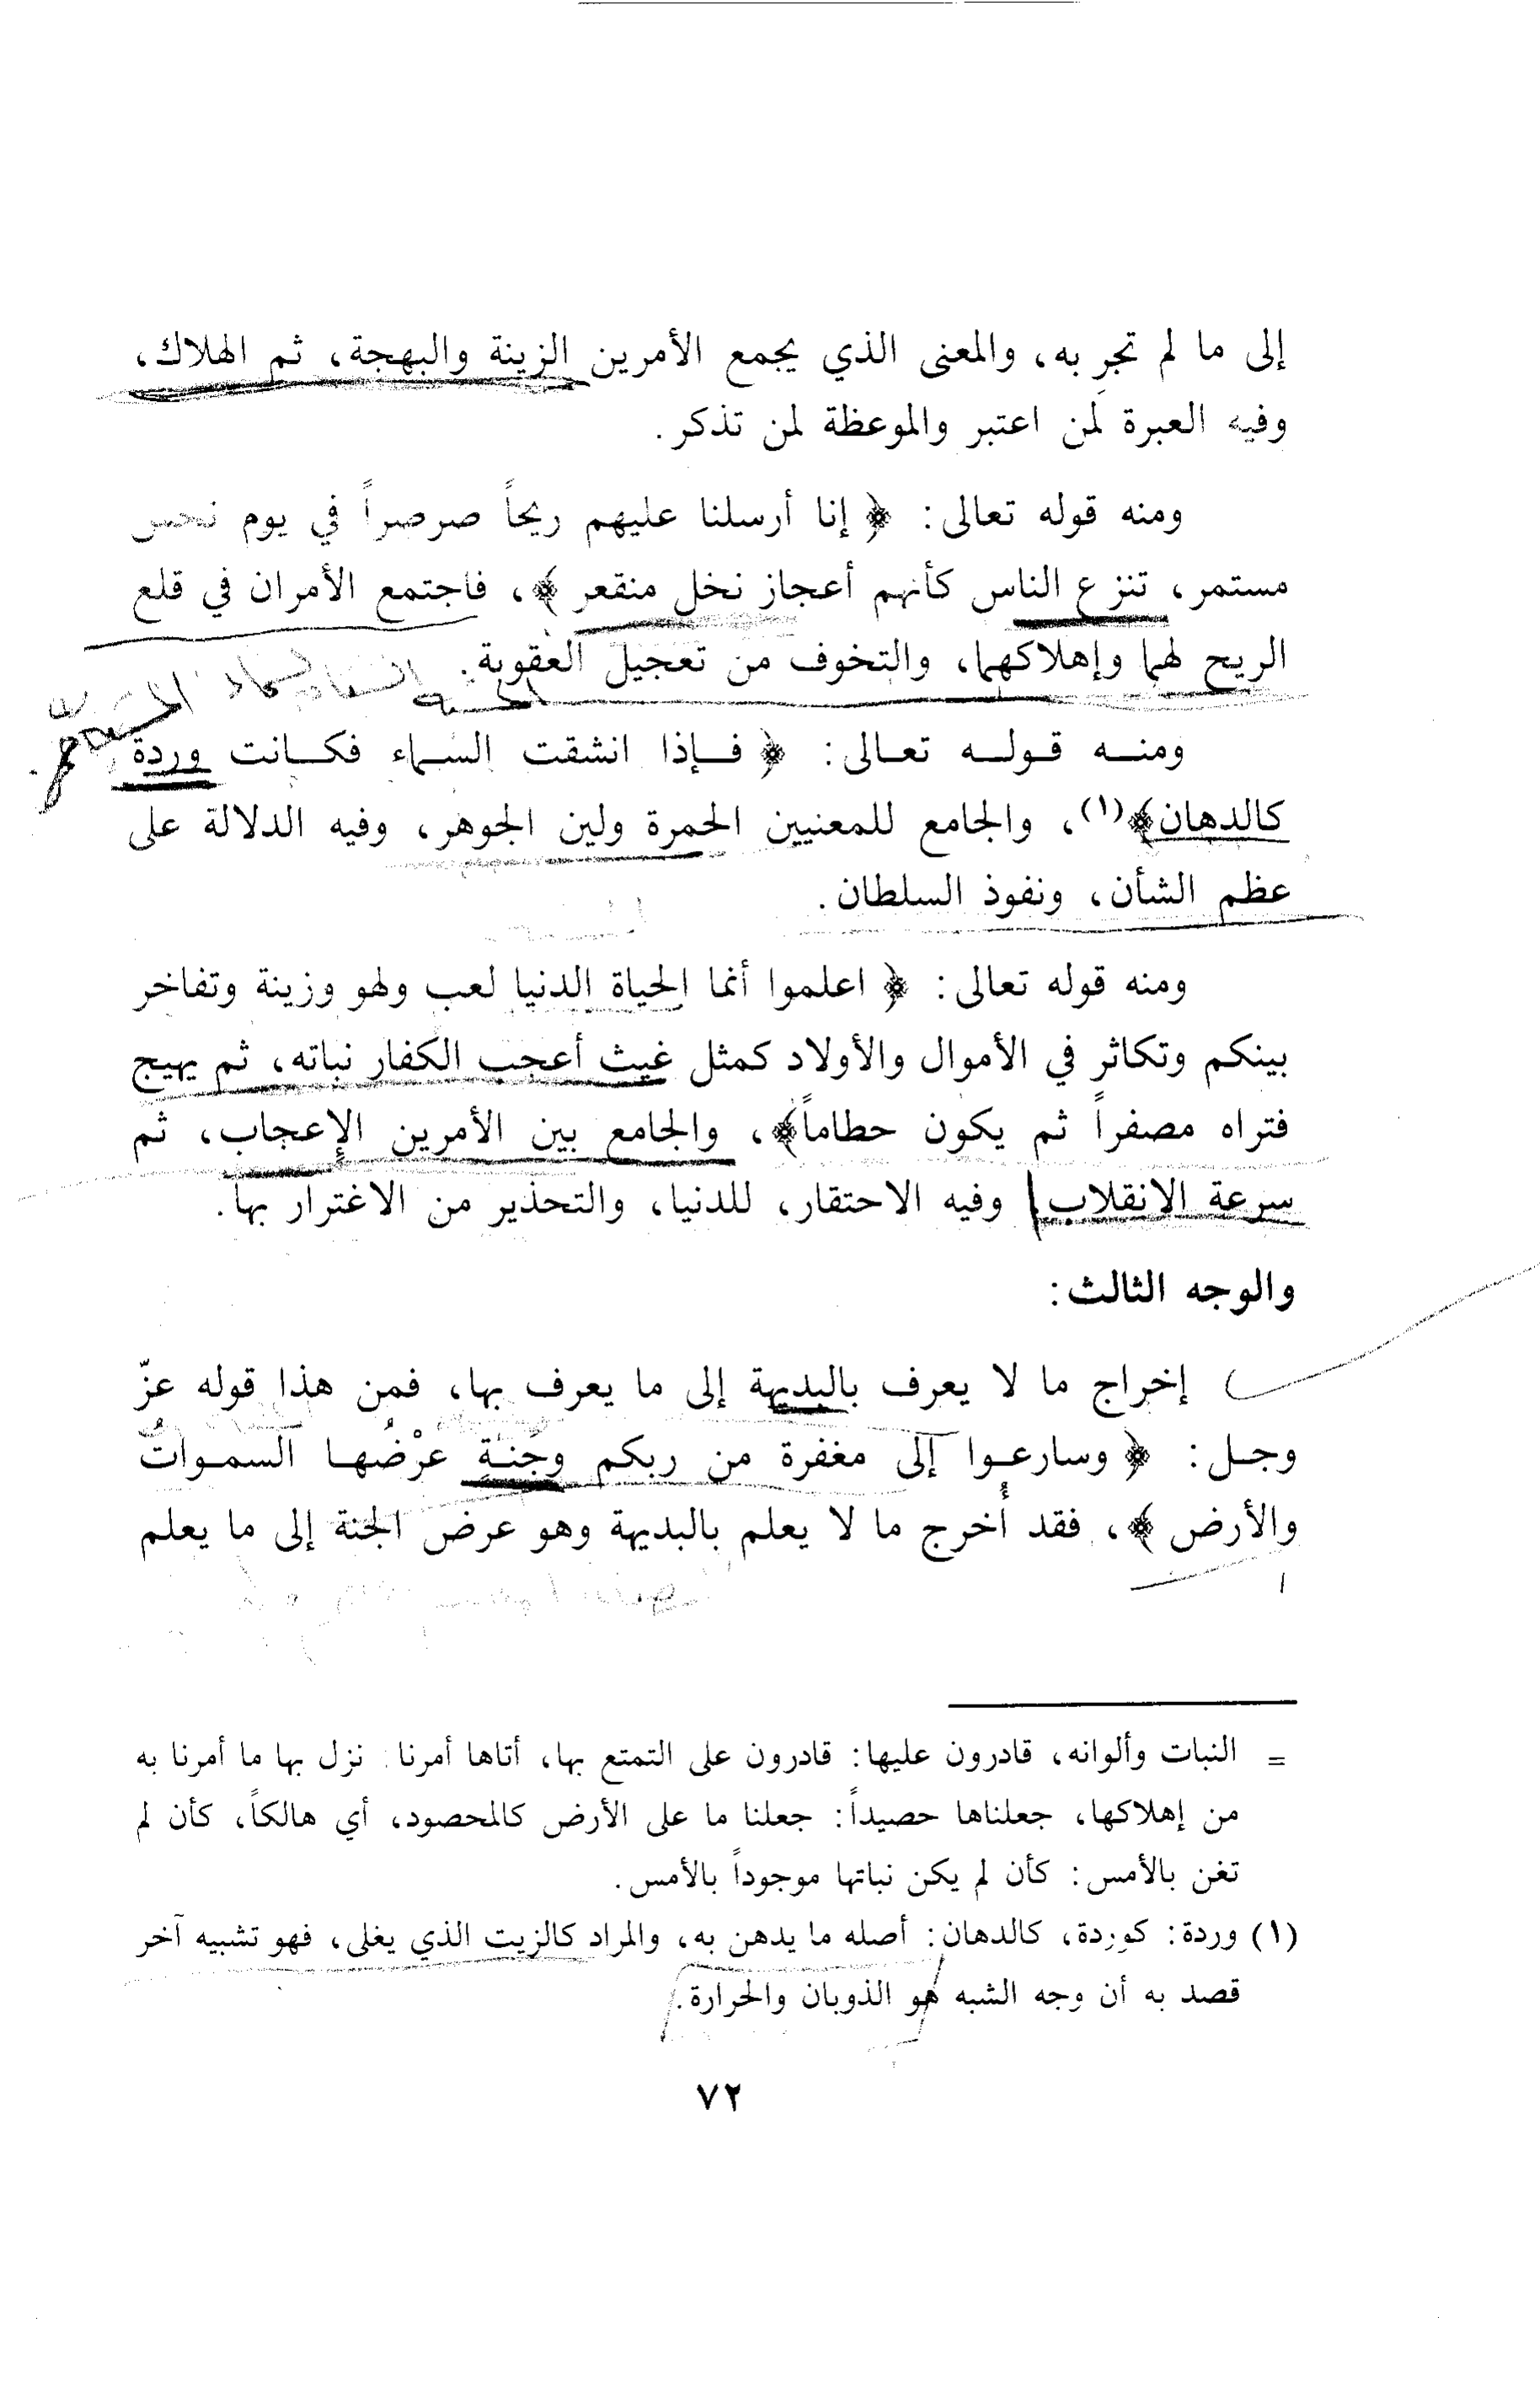 إلى ما لم تجرِ به، والمعنى الذي يجمع الأمرين الزينة والبهجة، ثم الهلاك،
وفيه العبرة لمن اعتبر والموعظة لمن تذكر.
ومنه قوله تعالى: ﴿ إنا أرسلنا عليهم ريحاً صرصراً في يوم نحس
مستمر، تنزع الناس كأنهم أعجاز نخل منقعر ﴾، فاجتمع الأمران في قلع
الريح لهما وإهلاكهما، والتخوف من تعجيل العقوبة.
ومنه قوله تعالى: ﴿ فإذا انشقت السماء فكانت وردة
كالدهان﴾(١)، والجامع للمعنيين الحمرة ولين الجوهر، وفيه الدلالة على
عظم الشأن، ونفوذ السلطان.
ومنه قوله تعالى: ﴿ اعلموا أنما الحياة الدنيا لعب ولهو وزينة وتفاخر
بينكم وتكاثر في الأموال والأولاد كمثل غيث أعجب الكفار نباته، ثم يهيج
فتراه مصفراً ثم يكون حطاماً﴾، والجامع بين الأمرين الإعجاب، ثم
سرعة الانقلاب وفيه الاحتقار، للدنيا، والتحذير من الاغترار بها.
والوجه الثالث:
إخراج ما لا يعرف بالبديهة إلى ما يعرف بها، فمن هذا قوله عزّ
وجل: ﴿ وسارعوا إلى مغفرة من ربكم وجَنةٍ عرْضُها السمواتُ
والأرض ﴾، فقد أُخرج ما لا يعلم بالبديهة وهو عرض الجنة إلى ما يعلم
= النبات وألوانه، قادرون عليها: قادرون على التمتع بها، أتاها أمرنا نزل بها ما أمرنا به
من إهلاكها، جعلناها حصيداً: جعلنا ما على الأرض كالمحصود، أي هالكاً، كأن لم
تغن بالأمس: كأن لم يكن نباتها موجوداً بالأمس.
(١) وردة: كوردة، كالدهان: أصله ما يدهن به، والمراد كالزيت الذي يغلى، فهو تشبيه آخر
قصد به أن وجه الشبه هو الذوبان والحرارة.
٧٢